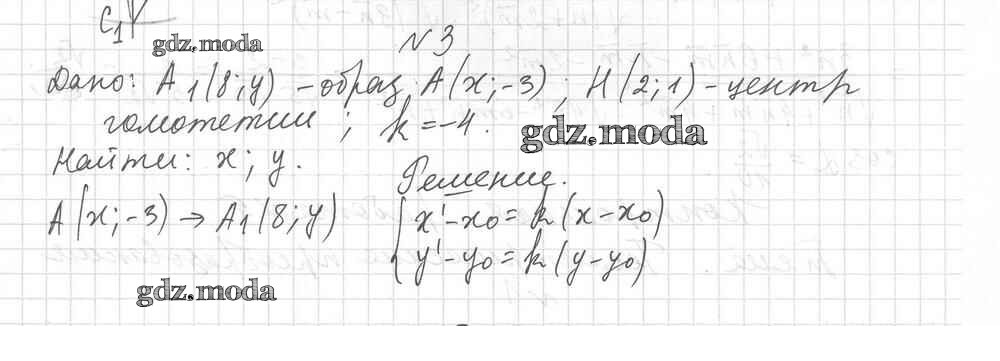 C₁
gdz.moda
N 3
Дано: A₁(8; y) – образ A(x; -3); H(2; 1) – центр
гомотетии; k = -4.
gdz.moda
Найти: x; y.
Решение.
A(x; -3) → A₁(8; y)
{ x' - x₀ = k(x - x₀)
y' - y₀ = k(y - y₀)
gdz.moda